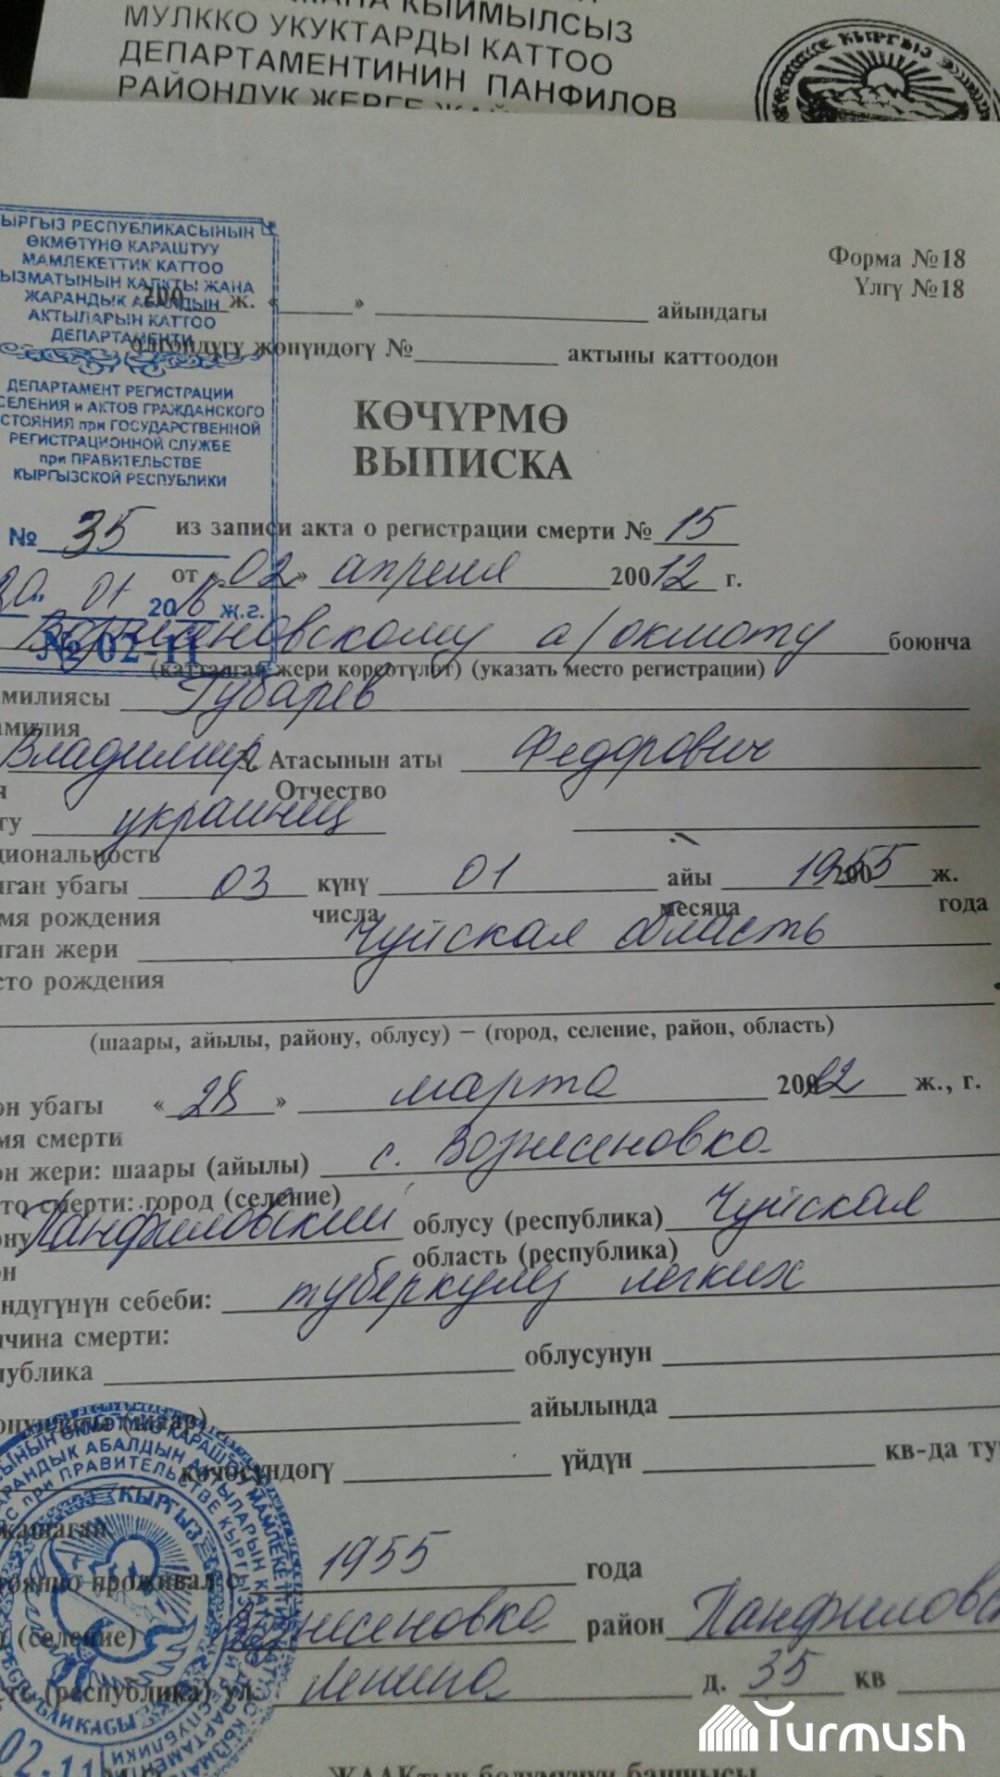 КЫЙМЫЛСЫЗ
МУЛККО УКУКТАРДЫ КАТТОО
ДЕПАРТАМЕНТИНИН ПАНФИЛОВ
РАЙОНДУК ЖЕРГЕ
Форма №18
Үлгү №18
ЫРГЫЗ РЕСПУБЛИКАСЫНЫН
ӨКМӨТҮНӨ КАРАШТУУ
МАМЛЕКЕТТИК КАТТОО
ЫЗМАТЫНЫН КАЛКТЫ ЖАНА
ЖАРАНДЫК АБАЛДЫН
АКТЫЛАРЫН КАТТОО
ДЕПАРТАМЕНТИ
200 ж. « » айындагы
өлгөндүгү жөнүндөгү № актыны каттоодон
ДЕПАРТАМЕНТ РЕГИСТРАЦИИ
СЕЛЕНИЯ и АКТОВ ГРАЖДАНСКОГО
СТОЯНИЯ при ГОСУДАРСТВЕННОЙ
РЕГИСТРАЦИОННОЙ СЛУЖБЕ
при ПРАВИТЕЛЬСТВЕ
КЫРГЫЗСКОЙ РЕСПУБЛИКИ
КӨЧҮРМӨ
ВЫПИСКА
№ 35
из записи акта о регистрации смерти № 15
от « 02 » апреля 200 12 г.
20 01 2016 ж.г.
№ 02-11
Вознесеновскому а/окмоту боюнча
(катталган жери көрсөтүлөт) (указать место регистрации)
амилиясы Губарев
амилия
Владимир 3. Атасынын аты Федорович
я Отчество
ту украинец
циональность
лган убагы 03 күнү 01 айы 1955 200 ж.
мя рождения числа месяца года
лган жери Чуйская область
сто рождения
(шаары, айылы, району, облусу) – (город, селение, район, область)
он убагы « 28 » марта 2012 ж., г.
мя смерти
он жери: шаары (айылы) с. Вознесеновка
сто смерти: город (селение)
ону Панфиловский облусу (республика) Чуйская
он область (республика)
ндүгүнүн себеби: туберкулез легких
ичина смерти:
публика облусунун
айылында
көчөсүндөгү үйдүн кв-да ту
жашаган.
тоянно проживал с 1955 года
(селение) Вознесеновка район Панфиловс
сть (республика) ул. Ленина д. 35 кв
КЫРГЫЗ
02-11
Turmush